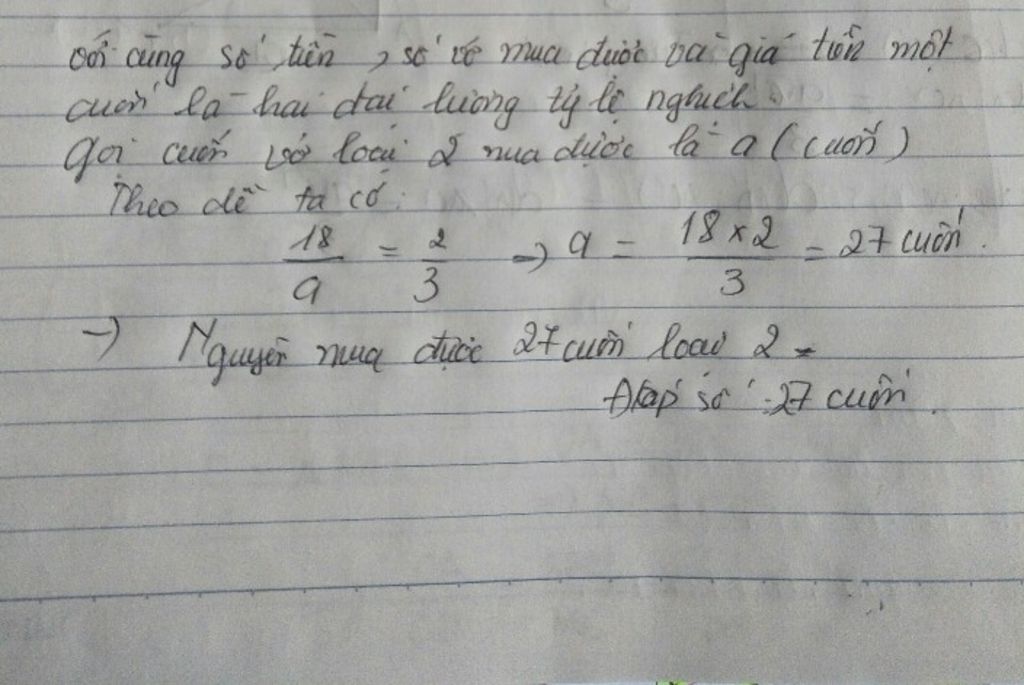 với cùng số tiền, số vở mua được và giá tiền một
cuốn là hai đại lượng tỷ lệ nghịch.
Gọi cuốn vở loại 2 mua được là a (cuốn)
Theo đề ta có:
18/a = 2/3 → a = 18×2/3 = 27 cuốn.
→ Nguyên mua được 27 cuốn loại 2
Đáp số: 27 cuốn.